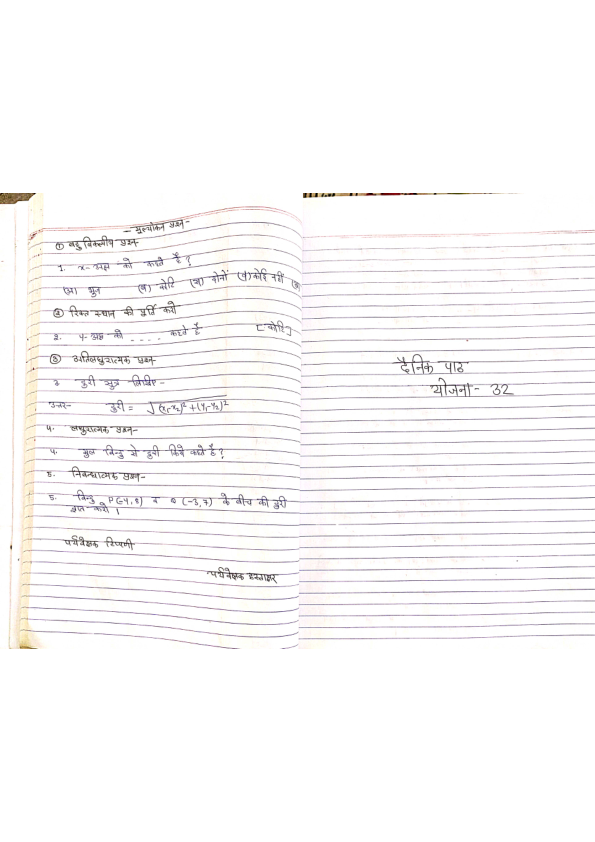 - मूल्यांकन प्रश्न-
① बहु विकल्पीय प्रश्न-
1. x-अक्ष को कहते हैं ?
(अ) भुज (ब) कोटि (स) दोनों (द) कोई नहीं (अ)
② रिक्त स्थान की पूर्ति करो
2. y-अक्ष को .... कहते हैं [कोटि]
③ अतिलघुरात्मक प्रश्न-
3 दुरी सूत्र लिखिए-
उत्तर- दुरी = √(x₁-x₂)² + (y₁-y₂)²
4. लघुरात्मक प्रश्न-
4. मुल बिन्दु से दुरी किसे कहते हैं ?
5. निबन्धात्मक प्रश्न-
5. बिन्दु P(-4, 8) व Q (-3, 7) के बीच की दुरी
ज्ञात करो ।
पर्यवेक्षक टिप्पणी
पर्यवेक्षक हस्ताक्षर
दैनिक पाठ
योजना - 32